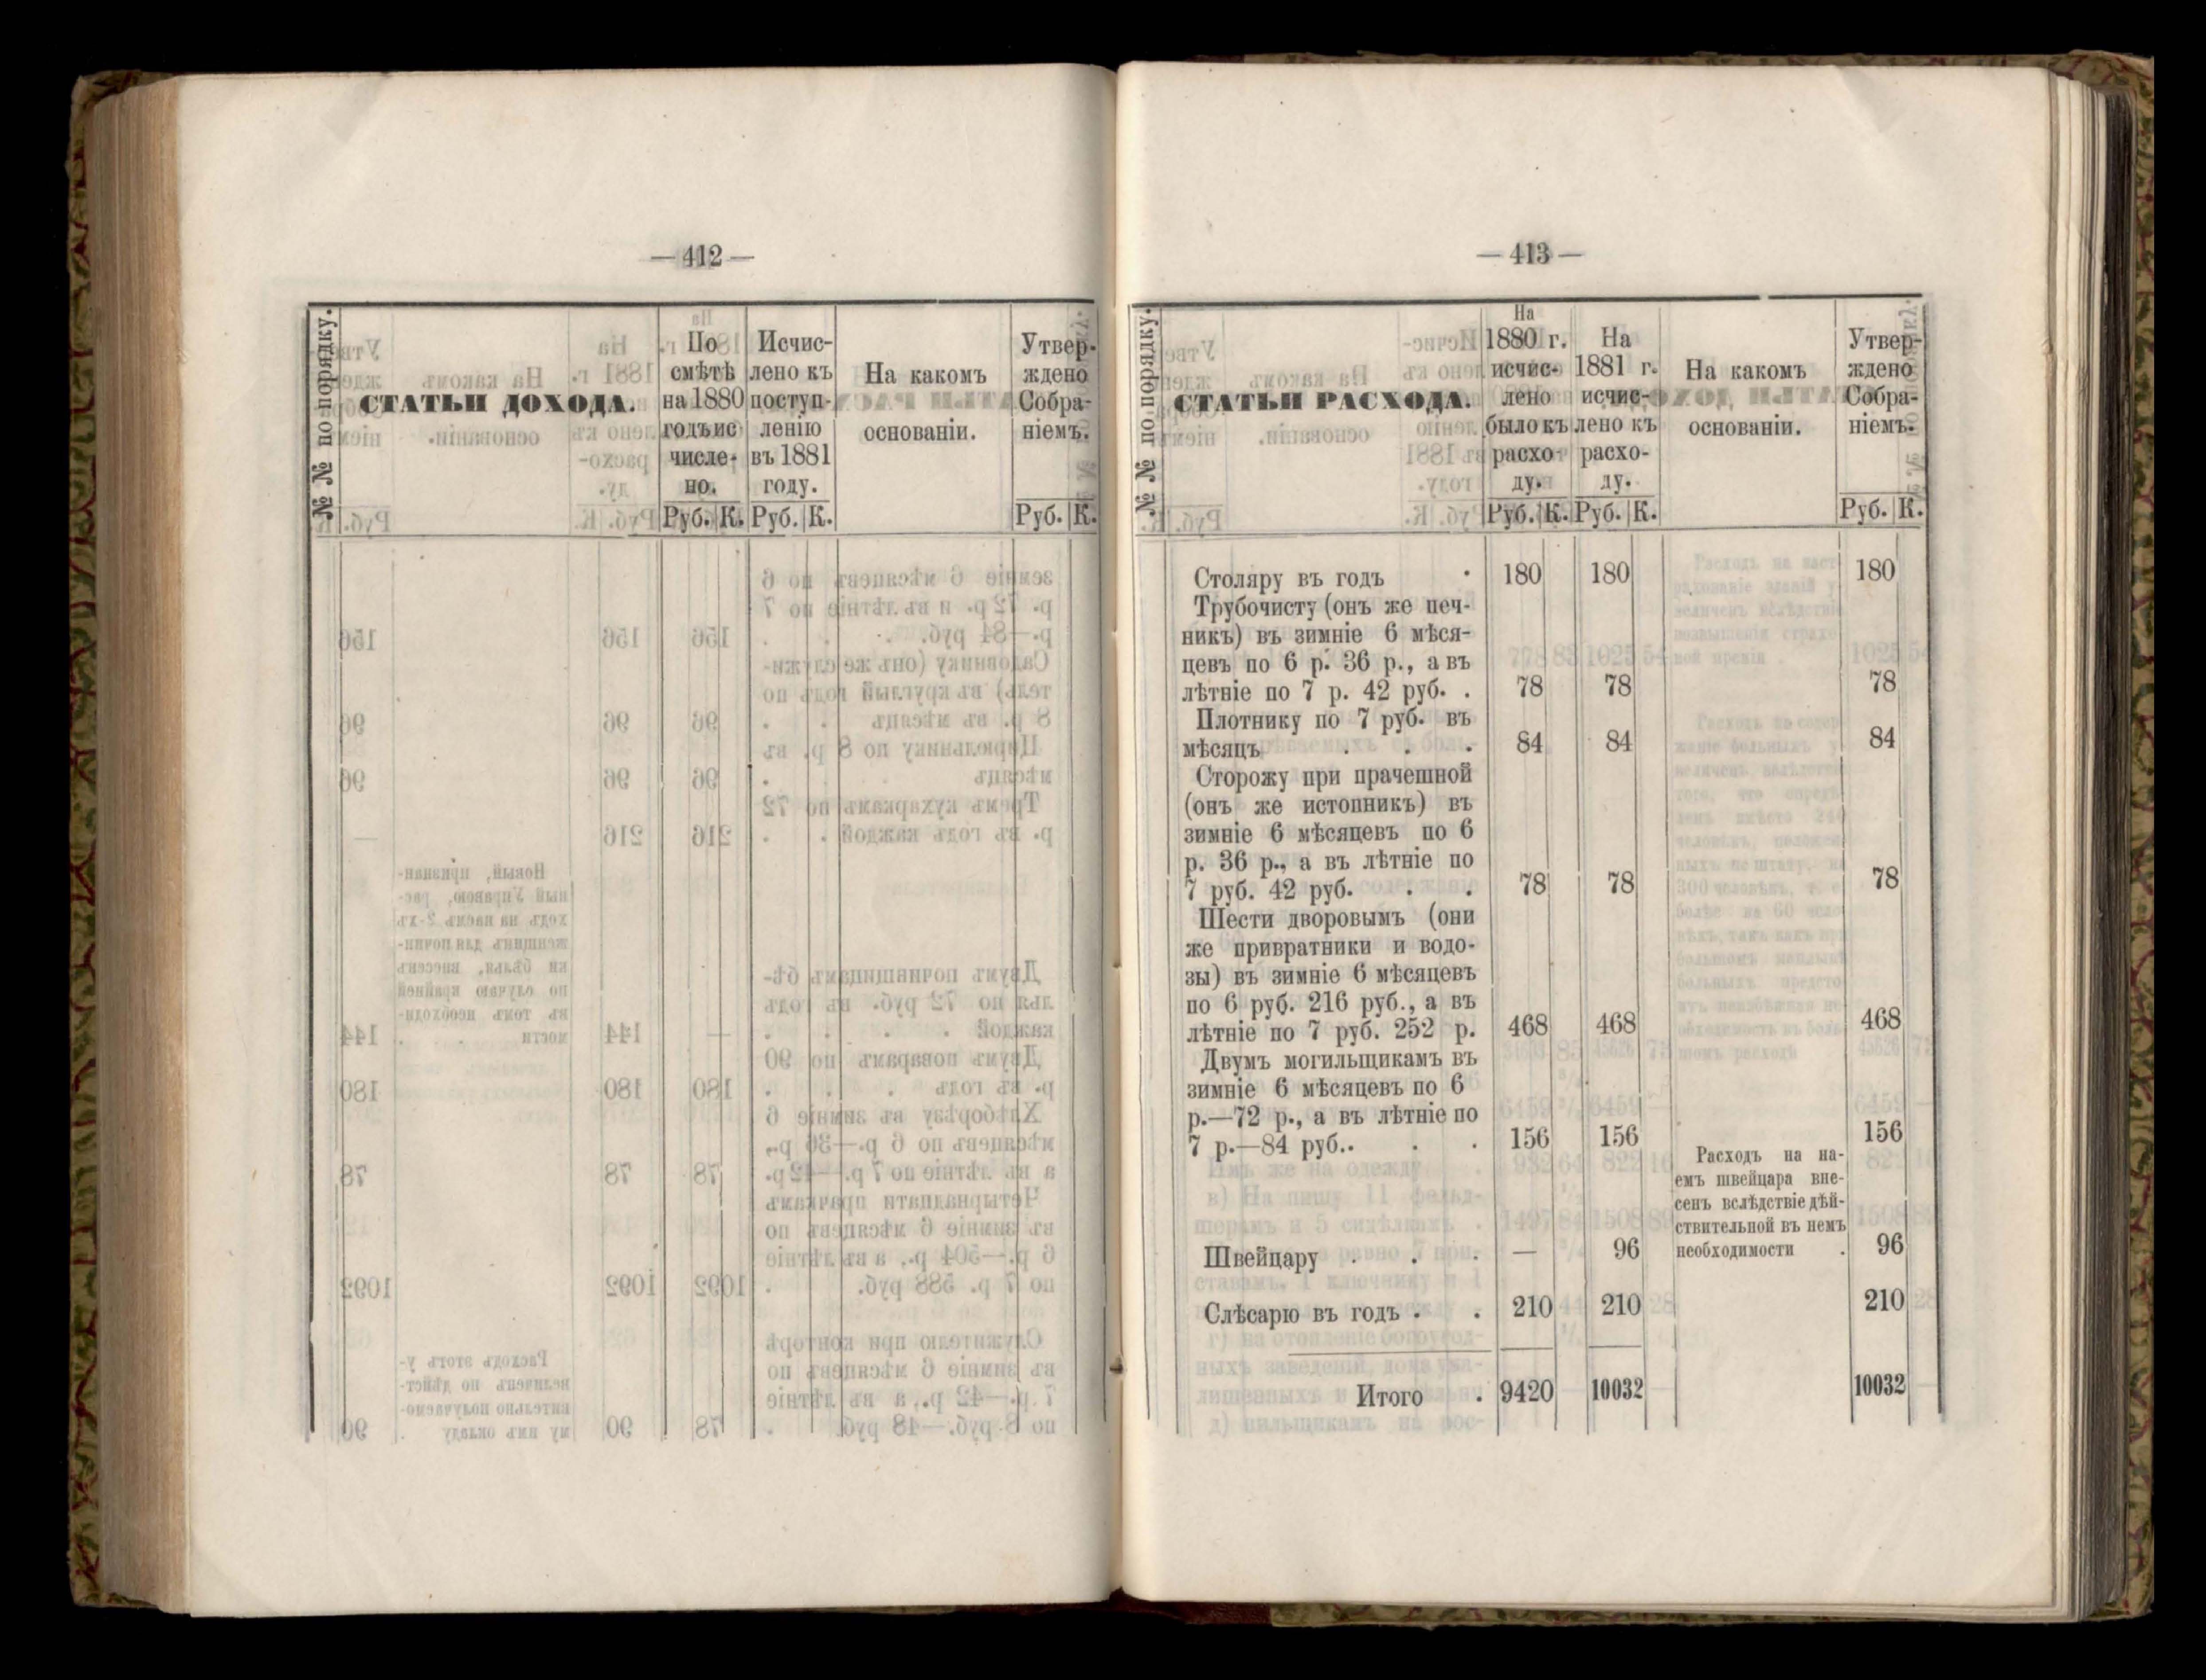 — 412 —
№ № по порядку.
СТАТЬИ ДОХОДА.
По
смѣтѣ
на 1880
годъ ис
числе-
но.
Руб. К.
Исчис-
лено къ
поступ-
ленію
въ 1881
году.
Руб. К.
На какомъ
основаніи.
Утвер-
ждено
Собра-
ніемъ.
Руб. К.
— 413 —
№ № по порядку.
СТАТЬИ РАСХОДА.
На
1880 г.
исчис-
лено
было къ
расхо-
ду.
Руб. К.
На
1881 г.
исчис-
лено къ
расхо-
ду.
Руб. К.
На какомъ
основаніи.
Утвер-
ждено
Собра-
ніемъ.
Руб. К.
Столяру въ годъ . 180 180 180
Трубочисту (онъ же печ-
никъ) въ зимніе 6 мѣся-
цевъ по 6 р. 36 р., а въ
лѣтніе по 7 р. 42 руб. . 78 78 78
Плотнику по 7 руб. въ
мѣсяцъ . . . 84 84 84
Сторожу при прачешной
(онъ же истопникъ) въ
зимніе 6 мѣсяцевъ по 6
р. 36 р., а въ лѣтніе по
7 руб. 42 руб. . . 78 78 78
Шести дворовымъ (они
же привратники и водо-
зы) въ зимніе 6 мѣсяцевъ
по 6 руб. 216 руб., а въ
лѣтніе по 7 руб. 252 р. 468 468 468
Двумъ могильщикамъ въ
зимніе 6 мѣсяцевъ по 6
р.—72 р., а въ лѣтніе по
7 р.—84 руб.. . . 156 156 156
Расходъ на на-
емъ швейцара вне-
сенъ вслѣдствіе дѣй-
ствительной въ немъ
Швейцару . . . — 96 необходимости . 96
Слѣсарю въ годъ . . 210 210 210
Итого . 9420 10032 10032